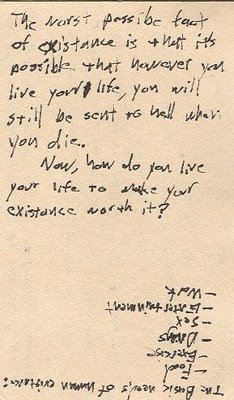 The worst possibe fact
of existance is that it's
possible that however you
live your life, you will
still be sent to hell when
you die.
Now, how do you live
your life to make your
existance worth it?
The Basic needs of human existance:
- Food
- Exercise
- Drugs
- Sex
- Entertainment
- Work